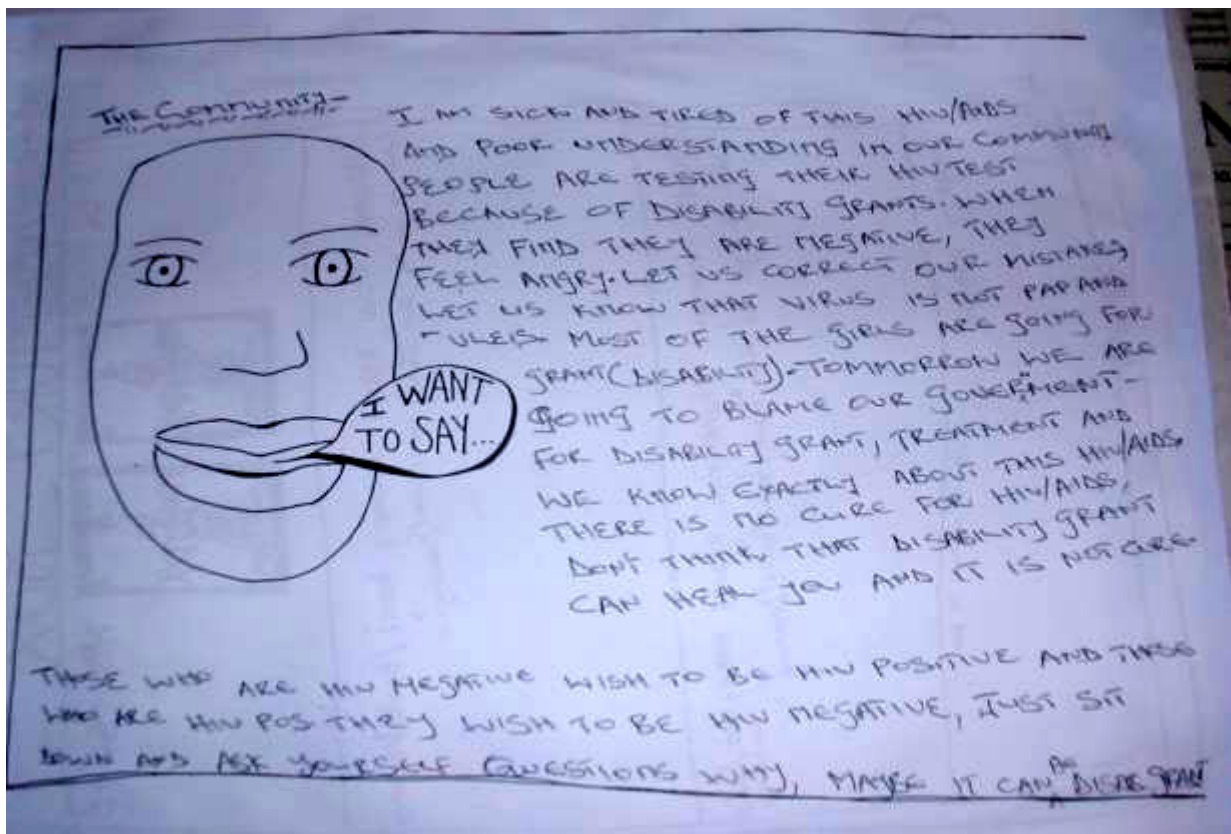 THE COMMUNITY-
I AM SICK AND TIRED OF THIS HIV/AIDS
AND POOR UNDERSTANDING IN OUR COMMUNITY
PEOPLE ARE TESTING THEIR HIV TEST
BECAUSE OF DISABILITY GRANTS. WHEN
THEY FIND THEY ARE NEGATIVE, THEY
FEEL ANGRY. LET US CORRECT OUR MISTAKES
LET US KNOW THAT VIRUS IS NOT PAP AND
VLEIS. MOST OF THE GIRLS ARE GOING FOR
GRANT (DISABILITY) - TOMMORROW WE ARE
GOING TO BLAME OUR GOVERMENT-
FOR DISABILITY GRANT, TREATMENT AND
WE KNOW EXACTLY ABOUT THIS HIV/AIDS
THERE IS NO CURE FOR HIV/AIDS,
DON'T THINK THAT DISABILITY GRANT
CAN HEAL YOU AND IT IS NOT CURE.
I WANT
TO SAY...
THOSE WHO ARE HIV NEGATIVE WISH TO BE HIV POSITIVE AND THOSE
WHO ARE HIV POS THEY WISH TO BE HIV NEGATIVE, JUST SIT
DOWN AND ASK YOURSELF QUESTIONS WHY, MAYBE IT CAN DISAB GRANT